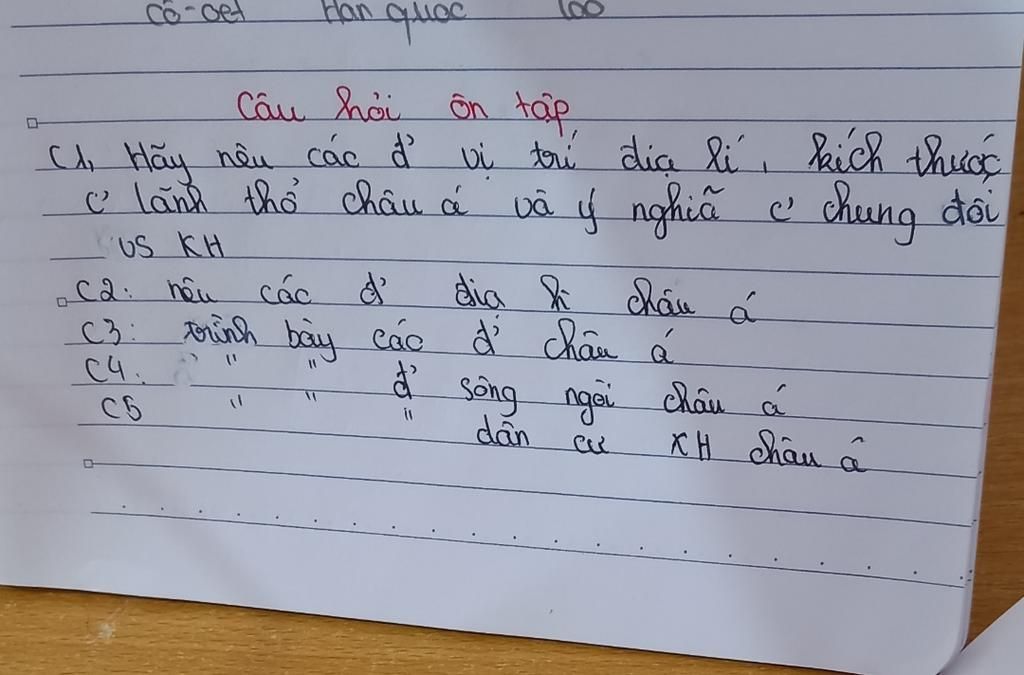 Cô-oet Hàn quốc 100
Câu hỏi ôn tập
C1, Hãy nêu các đ' vị trí địa lí, kích thước
c' lãnh thổ châu á và ý nghĩa c' chung đối
vs KH
C2: nêu các đ' địa hì châu á
C3: trình bày các đ' châu á
C4: " " đ' sông ngòi châu á
C5 " " " dân cư XH châu á